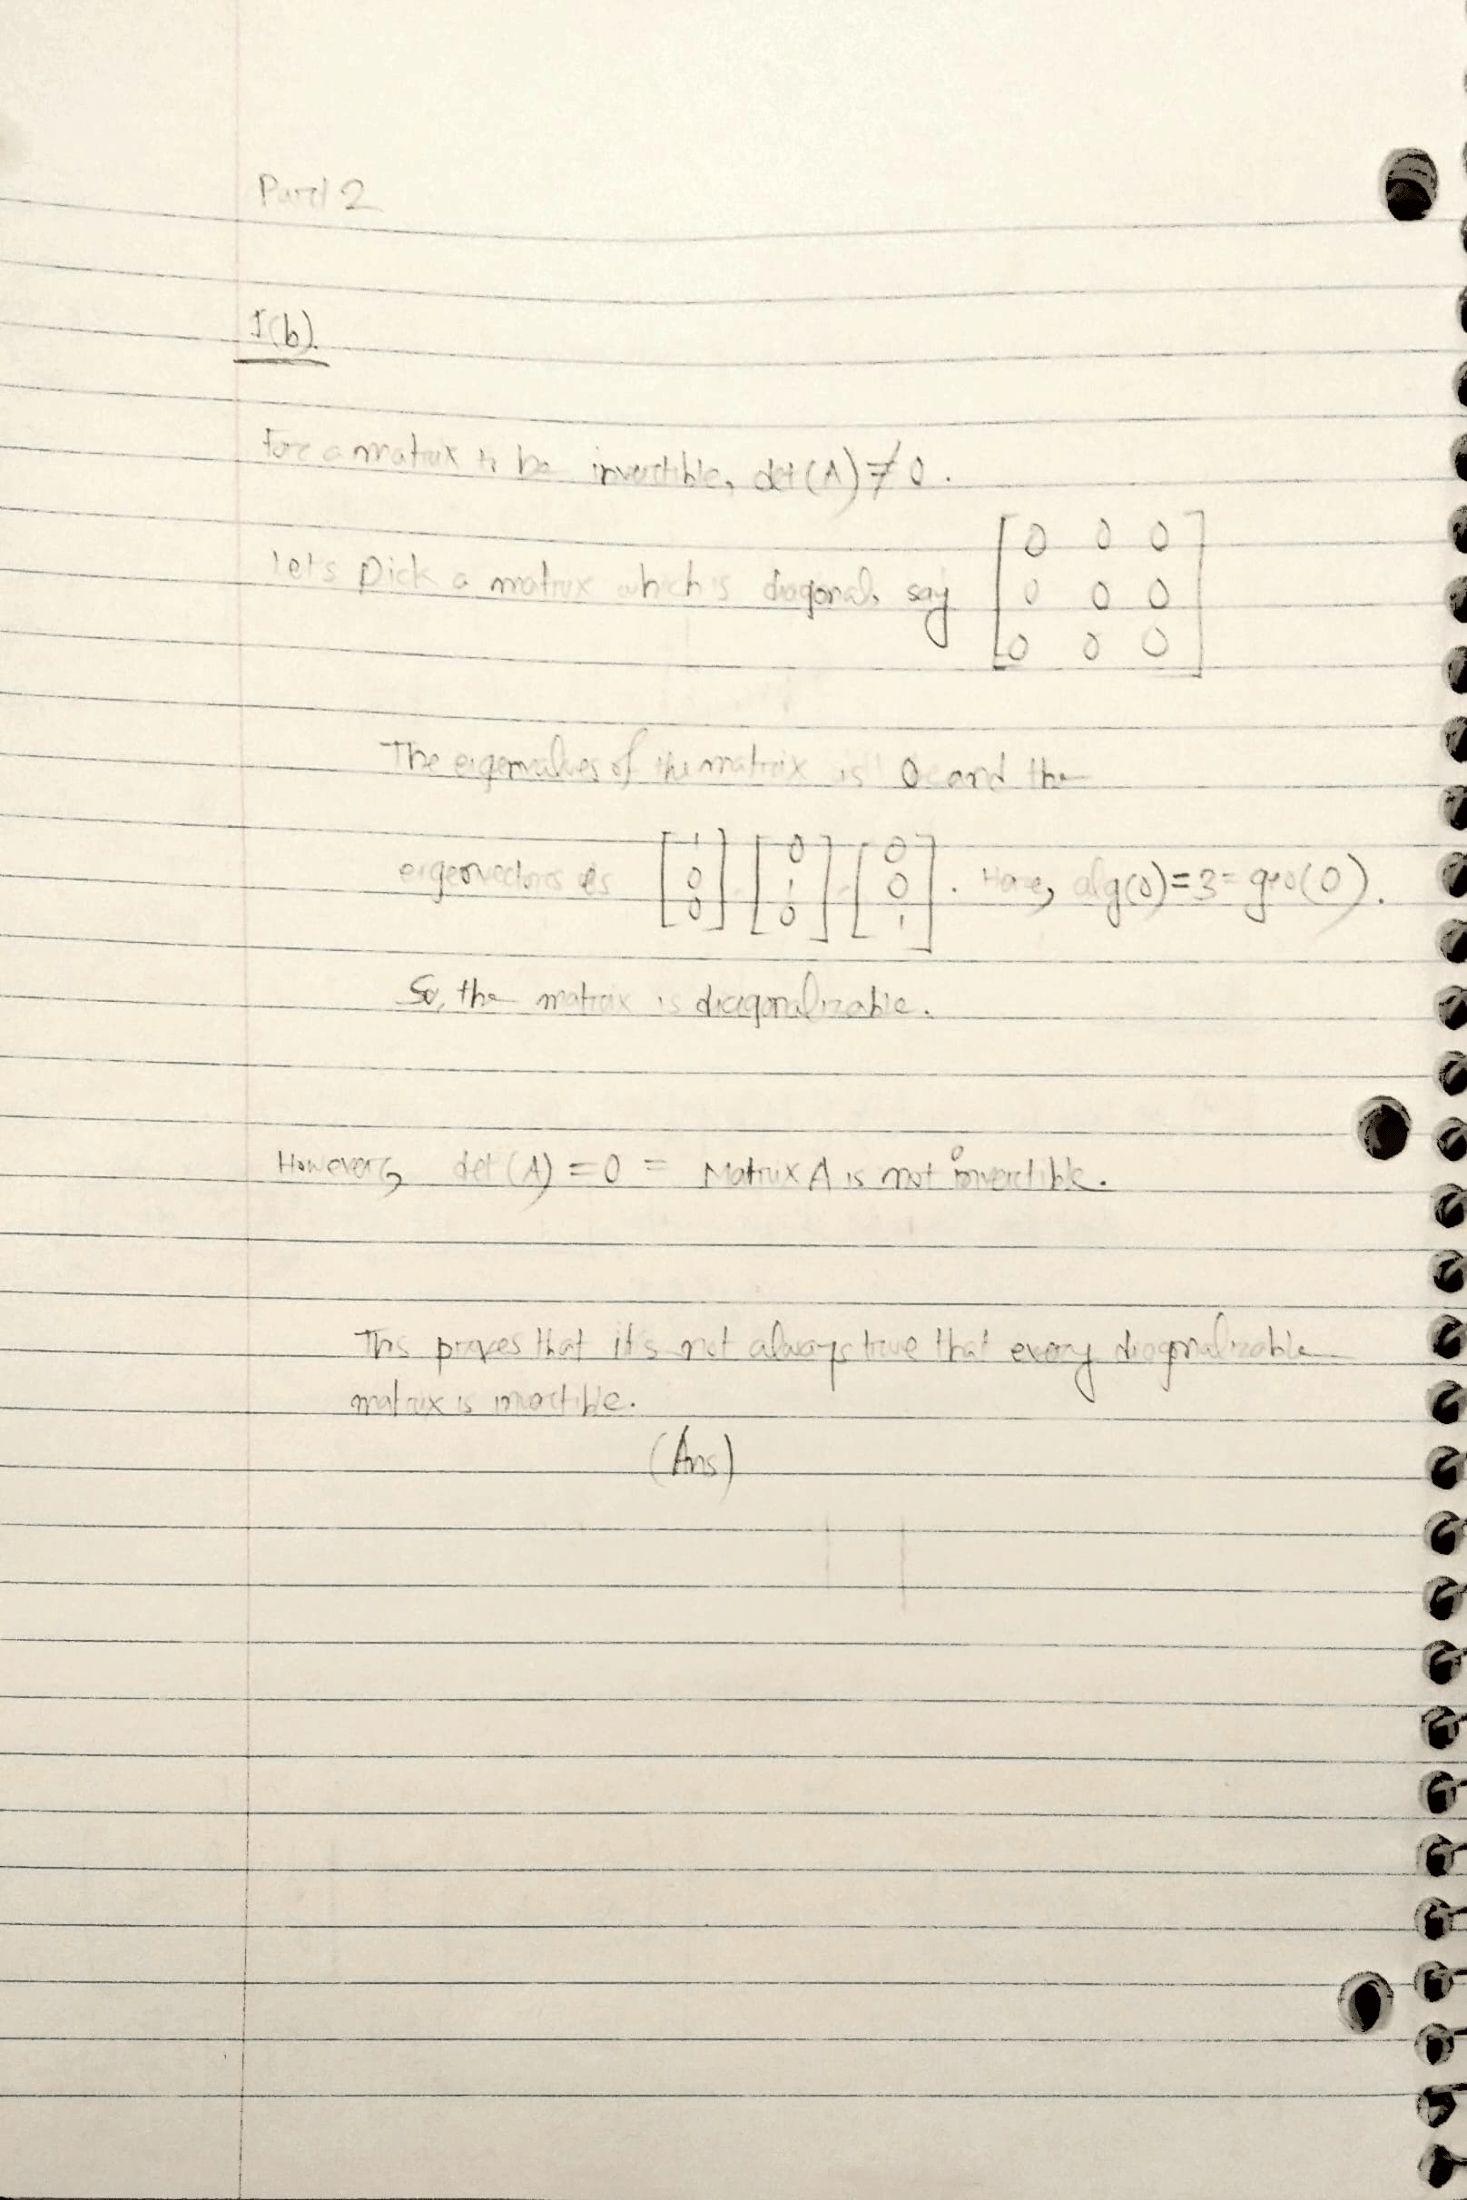 Part 2
I(b).
For a matrix to be invertible, det (A) ≠ 0.
Let's pick a matrix which is diagonal, say [0 0 0
0 0 0
0 0 0]
The eigenvalues of the matrix is 0 and the
eigenvectors is [1 0 0], [0 1 0], [0 0 1]. Here, alg(0)=3=geo(0).
So, the matrix is diagonalizable.
However, det (A) = 0 = Matrix A is not invertible.
This proves that it's not always true that every diagonalizable
matrix is invertible.
(Ans)